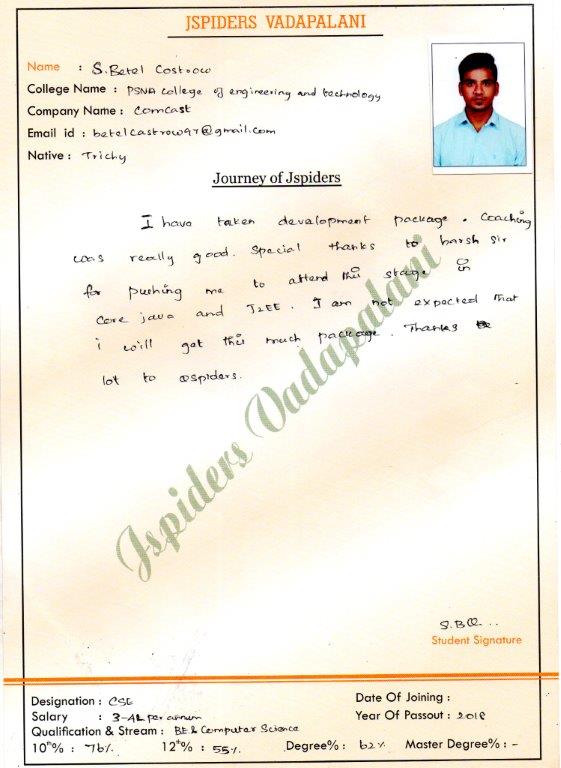 JSPIDERS VADAPALANI
Name : S. Betel Costrow
College Name : PSNA College of engineering and technology
Company Name : Comcast
Email id : betelcastrow97@gmail.com
Native : Trichy
Journey of Jspiders
I have taken development package. Coaching
was really good. Special thanks to harsh sir
for pushing me to attend this stage in
Core java and J2EE. I am not expected that
i will get this much package. Thanks
lot to Qspiders.
Jspiders Vadapalani
S.B
Student Signature
Designation : CSE
Date Of Joining :
Salary : 3-4L per annum
Year Of Passout : 2018
Qualification & Stream : BE & Computer Science
10th% : 76% 12th% : 55% Degree% : 62% Master Degree% : -